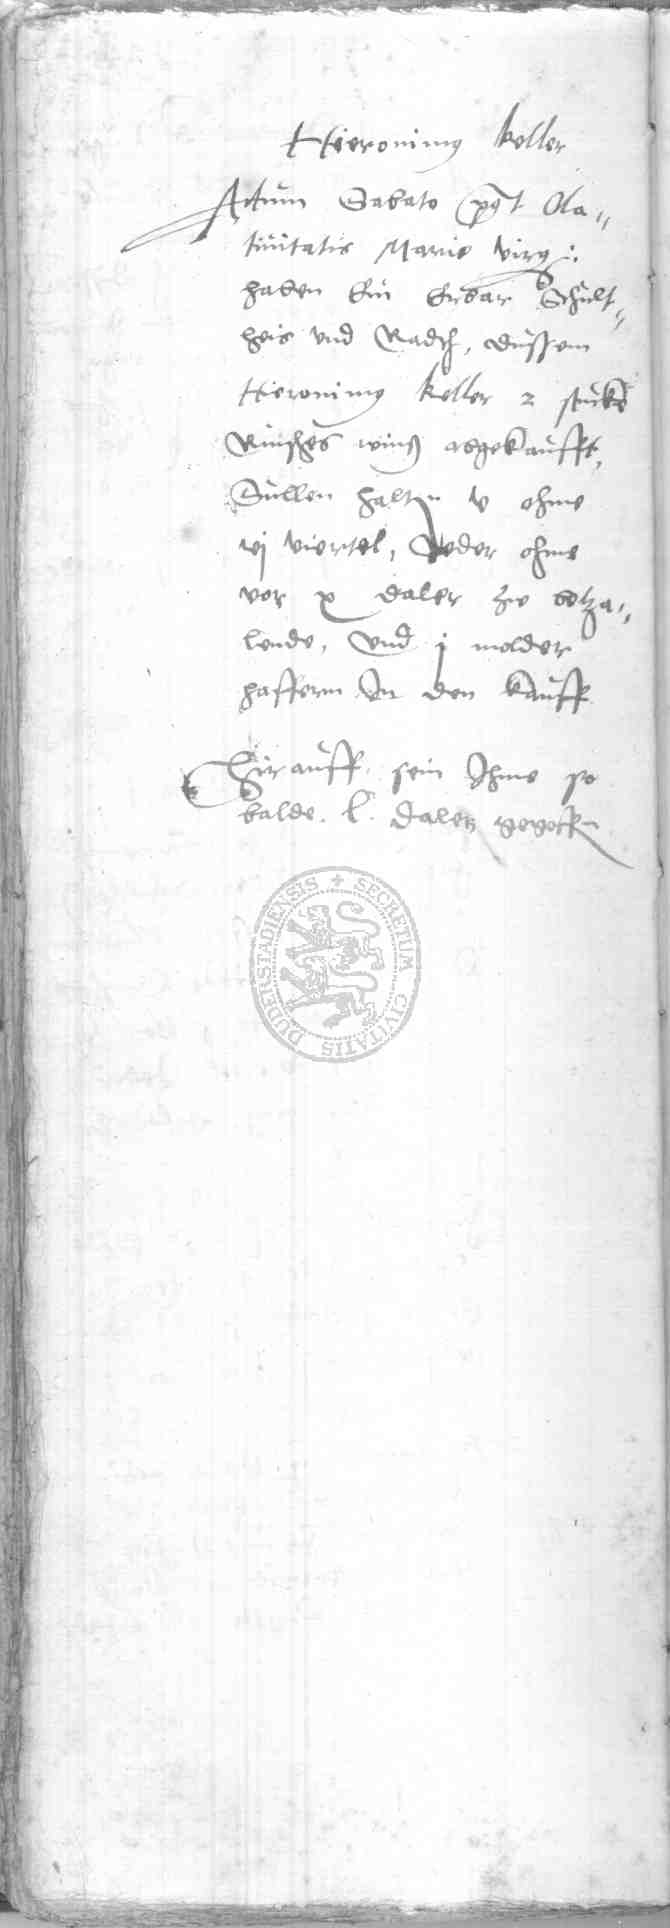 Hieronimus Keller
Actum Sabato post Na„
tiuitatis Marie virg:
haben Ein Erbar Schult„
heis vnd Radth, dussem
Hieronimus Keller 2 stucke
Rinsches wins abgekaufft,
Sullen halten v ohme
vj viertel, Jeder ohme
vor x daler zw betza„
lende, vnd j molder
haffern In den kauff
Hirauff sein Ihme so
balde. l. daler
SECRETUM CIVITATIS DUDERSTADIENSIS